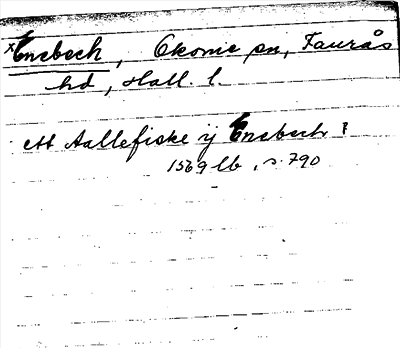 ×Enebech, Okome sn, Faurås
hd, Hall. l.
ett Aallefiske ij Enebech ?
1569 lb, s. 790